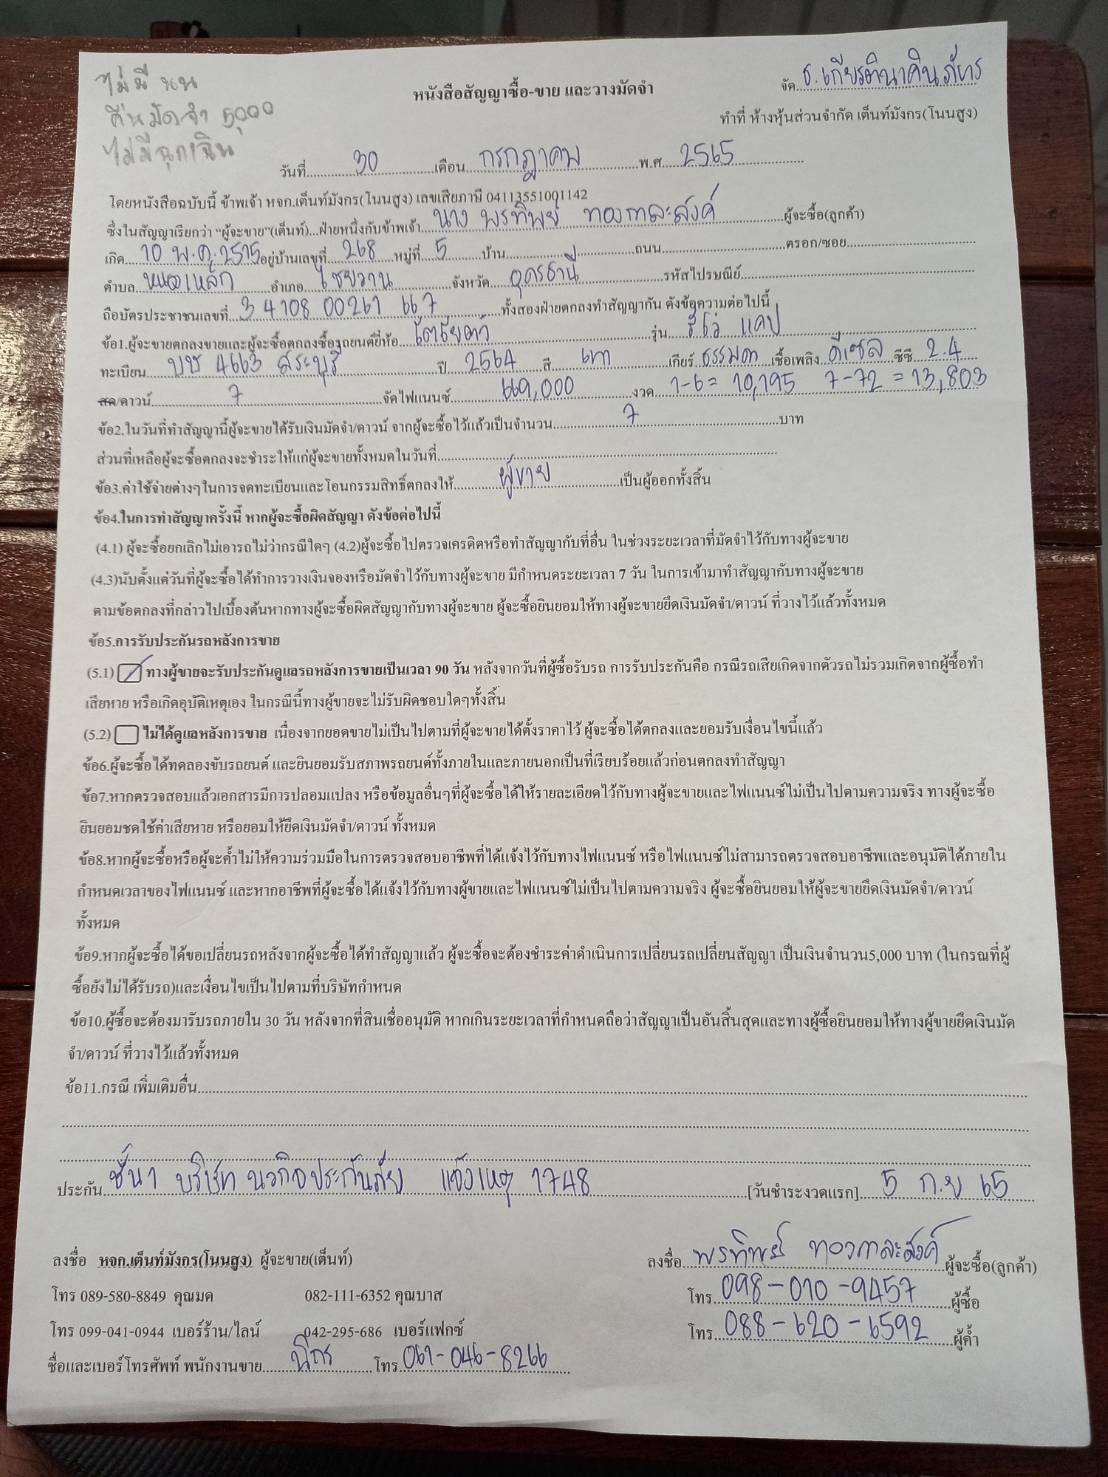 ไม่มี
คืนมัดจำ 5,000
ไม่มีฉุกเฉิน
จัด ธ.เกียรตินาคินภัทร
หนังสือสัญญาซื้อ-ขาย และวางมัดจำ
ทำที่ ห้างหุ้นส่วนจำกัด เต็นท์มังกร(โนนสูง)
วันที่ 30 เดือน กรกฎาคม พ.ศ. 2565
โดยหนังสือฉบับนี้ ข้าพเจ้า หจก.เต็นท์มังกร(โนนสูง) เลขเสียภาษี 04113551001142
ซึ่งในสัญญาเรียกว่า "ผู้จะขาย"(เต็นท์)...ฝ่ายหนึ่งกับข้าพเจ้า นาง พรทิพย์ ทองกาละสงค์ ผู้จะซื้อ(ลูกค้า)
เกิด 10 พ.ค. 2515 อยู่บ้านเลขที่ 268 หมู่ที่ 5 บ้าน ถนน ตรอก/ซอย
ตำบล หนองหลัก อำเภอ ไชยวาน จังหวัด อุดรธานี รหัสไปรษณีย์
ถือบัตรประชาชนเลขที่ 3 4108 00261 66 7 ทั้งสองฝ่ายตกลงทำสัญญากัน ดังข้อความต่อไปนี้
ข้อ1.ผู้จะขายตกลงขายและผู้จะซื้อตกลงซื้อรถยนต์ยี่ห้อ โตโยต้า รุ่น รีโว่ แคป
ทะเบียน บษ 4663 สระบุรี ปี 2564 สี เทา เกียร์ ธรรมดา เชื้อเพลิง ดีเซล ซีซี 2.4
สด/ดาวน์ 7 จัดไฟแนนซ์ 669,000 งวด 1-6 = 10,195 7-72 = 13,803
ข้อ2.ในวันที่ทำสัญญานี้ผู้จะขายได้รับเงินมัดจำ/ดาวน์ จากผู้จะซื้อไว้แล้วเป็นจำนวน 7 บาท
ส่วนที่เหลือผู้จะซื้อตกลงจะชำระให้แก่ผู้จะขายทั้งหมดในวันที่
ข้อ3.ค่าใช้จ่ายต่างๆในการจดทะเบียนและโอนกรรมสิทธิ์ตกลงให้ ผู้ขาย เป็นผู้ออกทั้งสิ้น
ข้อ4.ในการทำสัญญาครั้งนี้ หากผู้จะซื้อผิดสัญญา ดังข้อต่อไปนี้
(4.1) ผู้จะซื้อยกเลิกไม่เอารถไม่ว่ากรณีใดๆ (4.2)ผู้จะซื้อไปตรวจเครดิตหรือทำสัญญากับที่อื่น ในช่วงระยะเวลาที่มัดจำไว้กับทางผู้จะขาย
(4.3)นับตั้งแต่วันที่ผู้จะซื้อได้ทำการวางเงินจองหรือมัดจำไว้กับทางผู้จะขาย มีกำหนดระยะเวลา 7 วัน ในการเข้ามาทำสัญญากับทางผู้จะขาย
ตามข้อตกลงที่กล่าวไปเบื้องต้นหากทางผู้จะซื้อผิดสัญญากับทางผู้จะขาย ผู้จะซื้อยินยอมให้ทางผู้จะขายยึดเงินมัดจำ/ดาวน์ ที่วางไว้แล้วทั้งหมด
ข้อ5.การรับประกันรถหลังการขาย
(5.1) ทางผู้ขายจะรับประกันดูแลรถหลังการขายเป็นเวลา 90 วัน หลังจากวันที่ผู้ซื้อรับรถ การรับประกันคือ กรณีรถเสียเกิดจากตัวรถไม่รวมเกิดจากผู้ซื้อทำ
เสียหาย หรือเกิดอุบัติเหตุเอง ในกรณีนี้ทางผู้ขายจะไม่รับผิดชอบใดๆทั้งสิ้น
(5.2) ไม่ได้ดูแลหลังการขาย เนื่องจากยอดขายไม่เป็นไปตามที่ผู้จะขายได้ตั้งราคาไว้ ผู้จะซื้อได้ตกลงและยอมรับเงื่อนไขนี้แล้ว
ข้อ6.ผู้จะซื้อได้ทดลองขับรถยนต์ และยินยอมรับสภาพรถยนต์ทั้งภายในและภายนอกเป็นที่เรียบร้อยแล้วก่อนตกลงทำสัญญา
ข้อ7.หากตรวจสอบแล้วเอกสารมีการปลอมแปลง หรือข้อมูลอื่นๆที่ผู้จะซื้อได้ให้รายละเอียดไว้กับทางผู้จะขายและไฟแนนซ์ไม่เป็นไปตามความจริง ทางผู้จะซื้อ
ยินยอมชดใช้ค่าเสียหาย หรือยอมให้ยึดเงินมัดจำ/ดาวน์ ทั้งหมด
ข้อ8.หากผู้จะซื้อหรือผู้จะค้ำไม่ให้ความร่วมมือในการตรวจสอบอาชีพที่ได้แจ้งไว้กับทางไฟแนนซ์ หรือไฟแนนซ์ไม่สามารถตรวจสอบอาชีพและอนุมัติได้ภายใน
กำหนดเวลาของไฟแนนซ์ และหากอาชีพที่ผู้จะซื้อได้แจ้งไว้กับทางผู้ขายและไฟแนนซ์ไม่เป็นไปตามความจริง ผู้จะซื้อยินยอมให้ผู้จะขายยึดเงินมัดจำ/ดาวน์
ทั้งหมด
ข้อ9.หากผู้จะซื้อได้ขอเปลี่ยนรถหลังจากผู้จะซื้อได้ทำสัญญาแล้ว ผู้จะซื้อจะต้องชำระค่าดำเนินการเปลี่ยนรถเปลี่ยนสัญญา เป็นเงินจำนวน5,000 บาท (ในกรณที่ผู้
ซื้อยังไม่ได้รับรถ)และเงื่อนไขเป็นไปตามที่บริษัทกำหนด
ข้อ10.ผู้ซื้อจะต้องมารับรถภายใน 30 วัน หลังจากที่สินเชื่ออนุมัติ หากเกินระยะเวลาที่กำหนดถือว่าสัญญาเป็นอันสิ้นสุดและทางผู้ซื้อยินยอมให้ทางผู้ขายยึดเงินมัด
จำ/ดาวน์ ที่วางไว้แล้วทั้งหมด
ข้อ11.กรณี เพิ่มเติมอื่น
ประกัน ชั้น1 บริษัท นวกิจประกันภัย แจ้งเหตุ 1748 [วันชำระงวดแรก] 5 ก.ย 65
ลงชื่อ หจก.เต็นท์มังกร(โนนสูง) ผู้จะขาย(เต็นท์) ลงชื่อ พรทิพย์ ทองกาละสงค์ ผู้จะซื้อ(ลูกค้า)
โทร 089-580-8849 คุณมด 082-111-6352 คุณบาส โทร. 098-010-9457 ผู้ซื้อ
โทร 099-041-0944 เบอร์ร้าน/ไลน์ 042-295-686 เบอร์แฟกซ์ โทร. 088-620-6592 ผู้ค้ำ
ชื่อและเบอร์โทรศัพท์ พนักงานขาย โทร. 061-046-8266